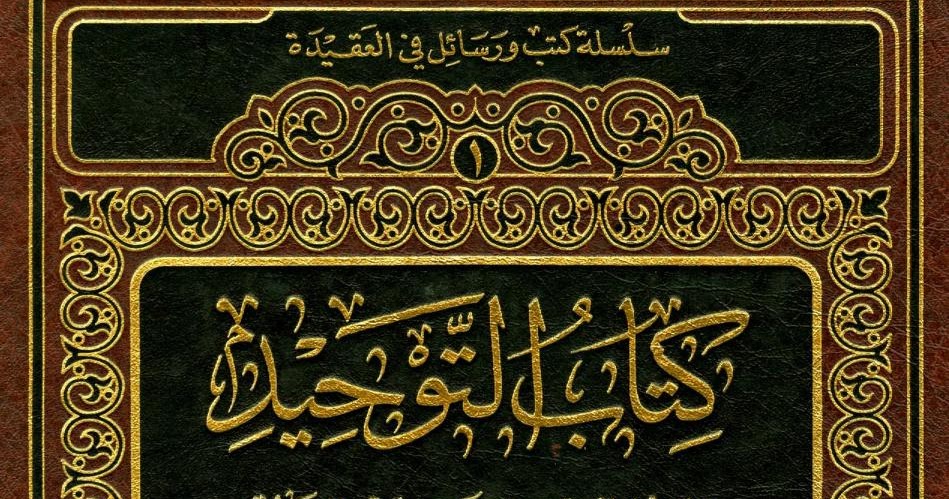 سلسلة كتب ورسائل في العقيدة
١
كِتَابُ التَّوْحِيدِ